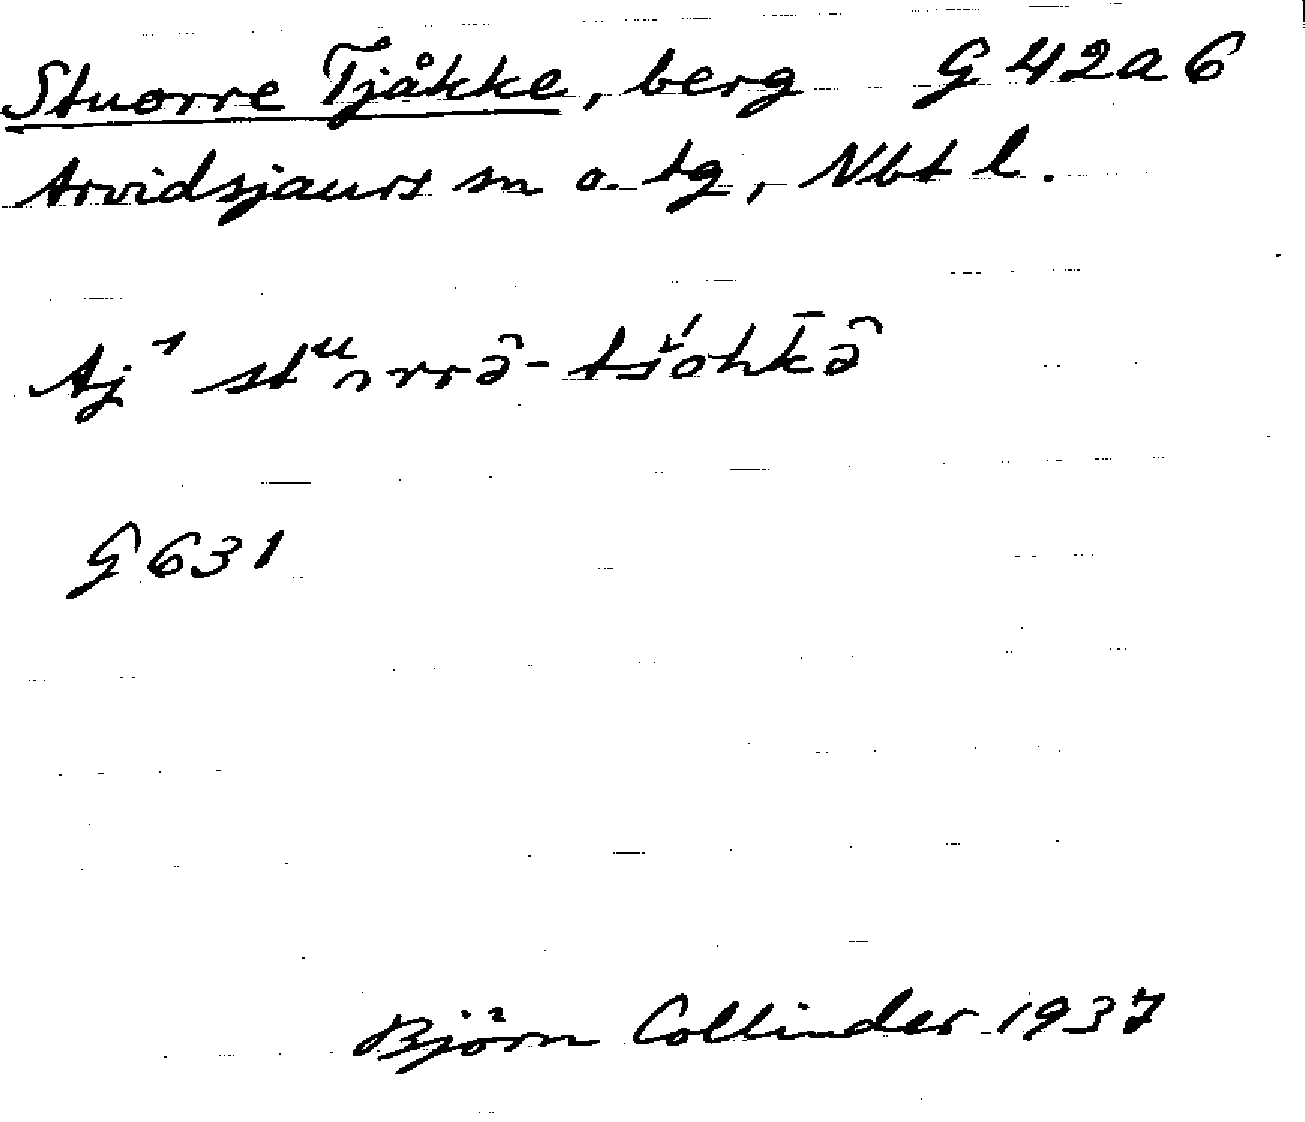 Stuorre Tjåkke, berg G 42 a 6
Arvidsjaurs sn o. tg, Nbt l.
Aj
G 631
Björn Collinder 1937